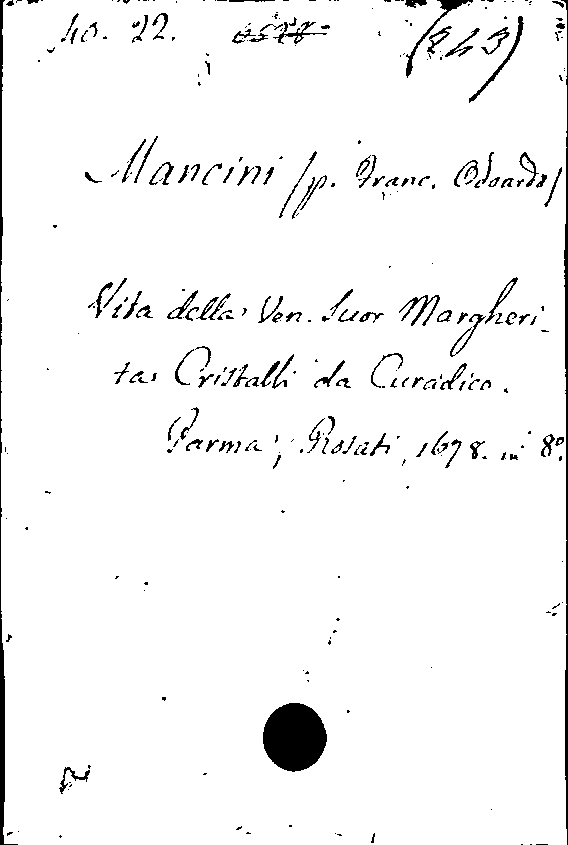 40. 22. (243)
Mancini /p. Franc. Odoardo/
Vita della Ven. Suor Margheri-
ta Cristalli da Curadico.
Parma, Rosati, 1678. in 8º.